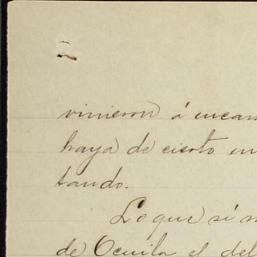 vinieron á encam
haya de cierto en
tando.
Lo que sí n
de Ocuila el del